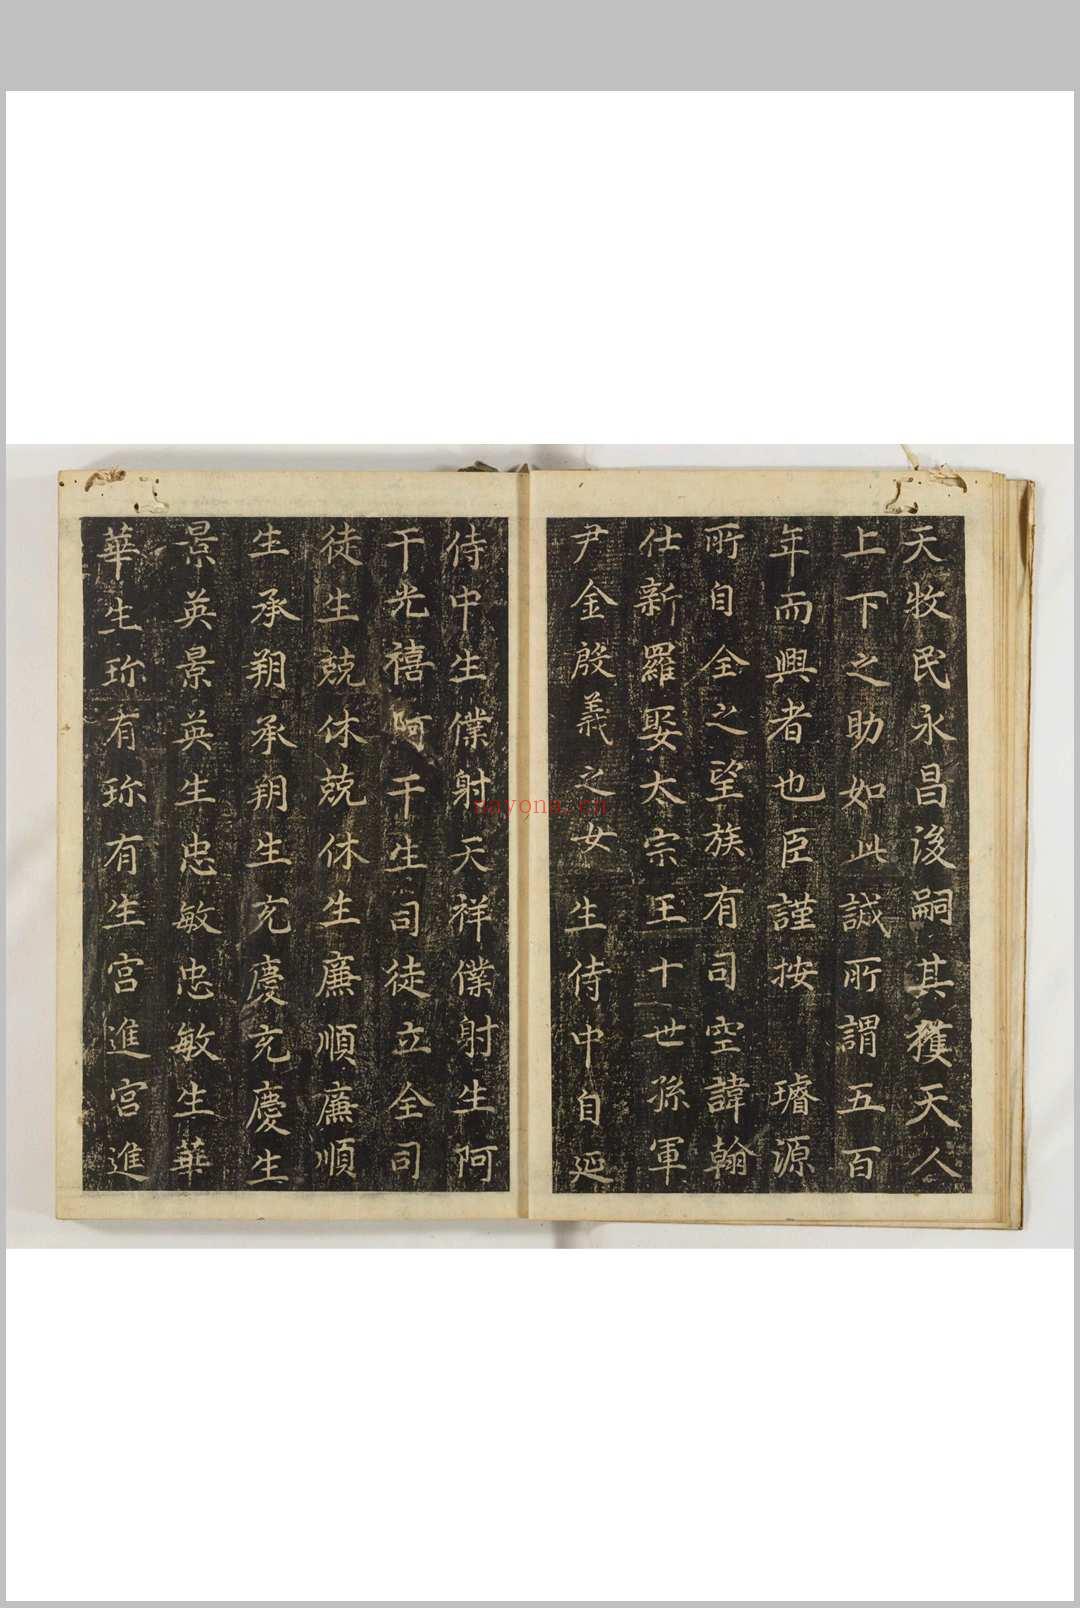 天牧民永昌後嗣其獲天人
上下之助如此誠所謂五百
年而興者也臣謹按 璿源
所自全之望族有司空諱翰
仕新羅娶太宗王十世孫軍
尹金殷義之女生侍中自延
侍中生僕射天祥僕射生阿
干光禧阿干生司徒立全司
徒生兢休兢休生廉順廉順
生承朔承朔生充慶充慶生
景英景英生忠敏忠敏生華
華生珎有珎有生宮進宮進
nayona.cn